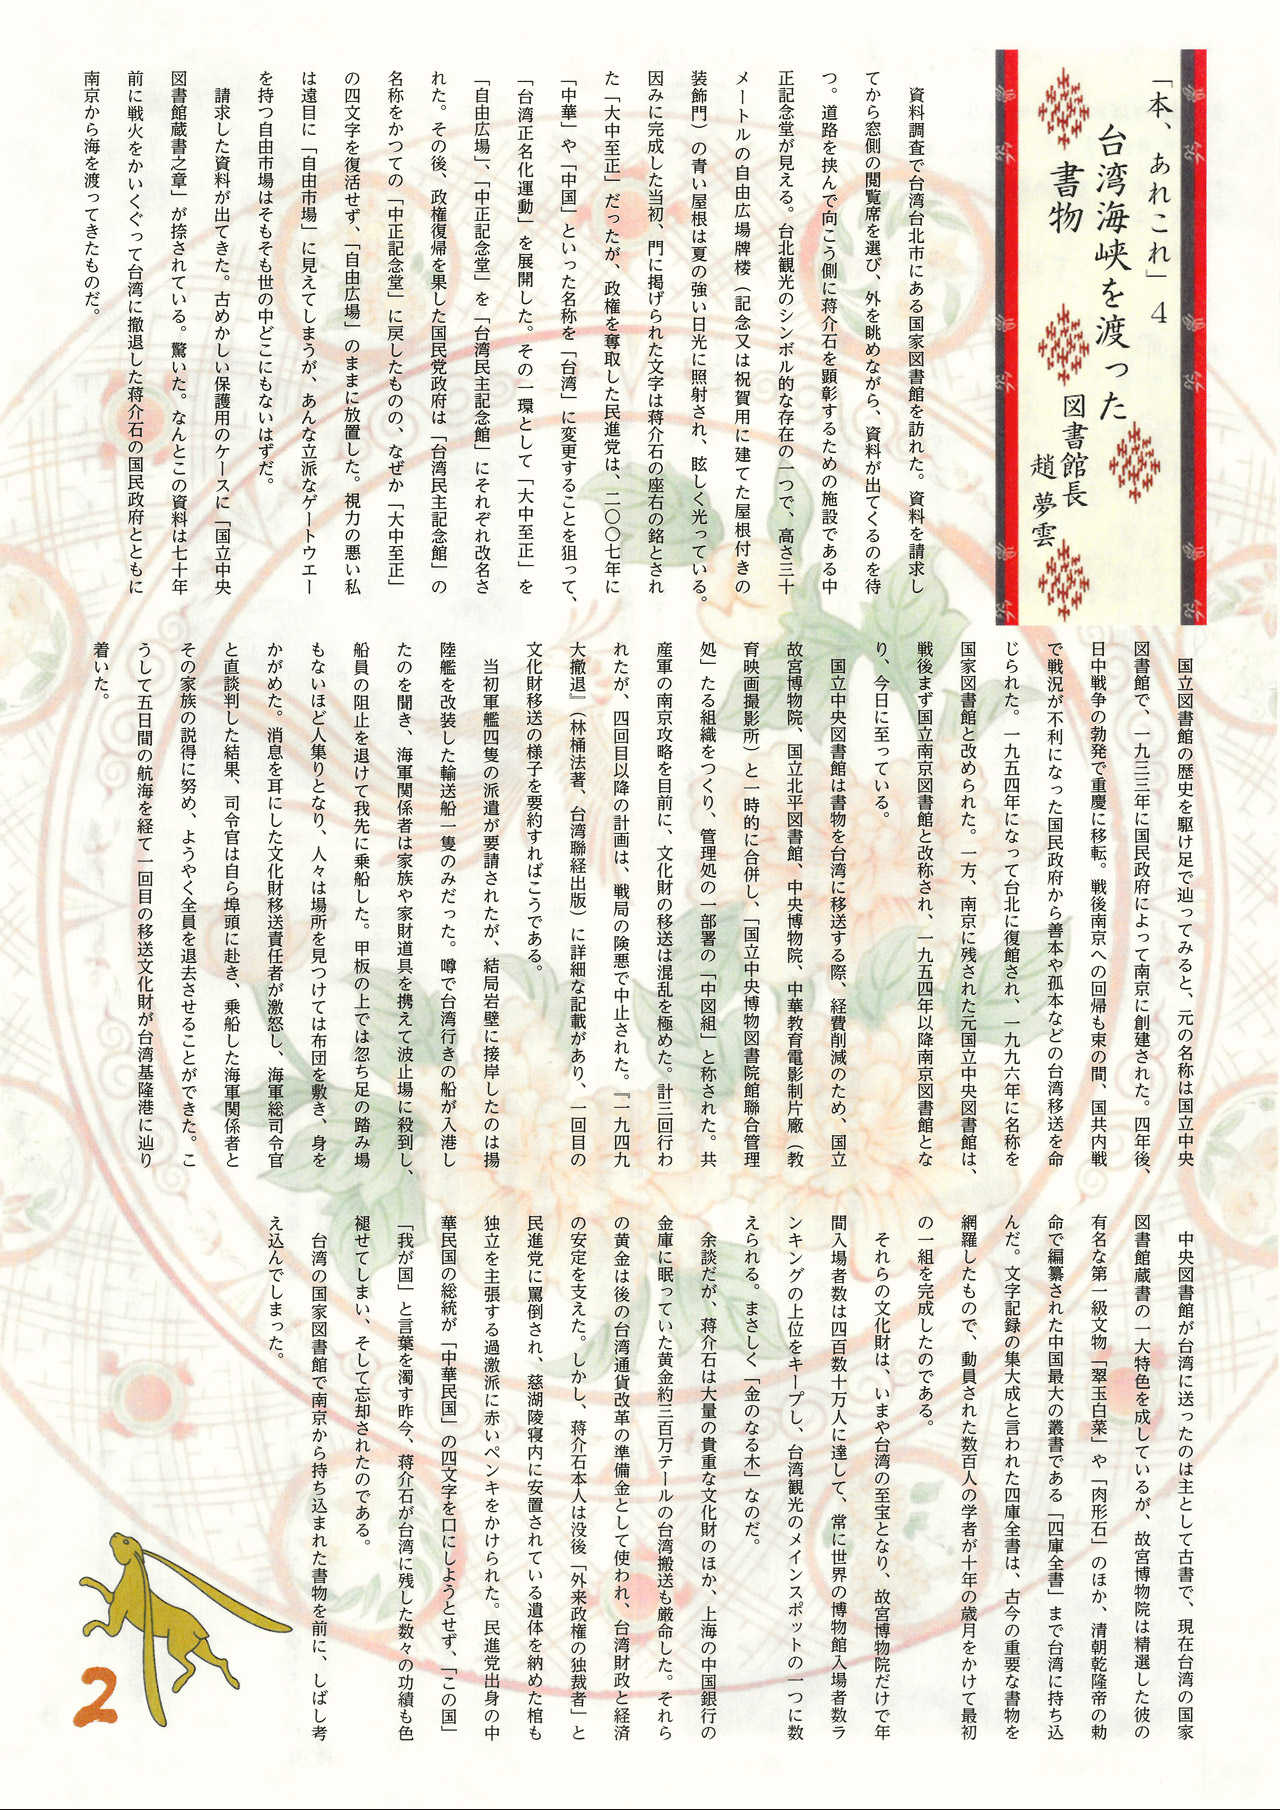 「本、あれこれ」４
台湾海峡を渡った
書物
図書館長
趙夢雲
資料調査で台湾台北市にある国家図書館を訪れた。資料を請求し
てから窓側の閲覧席を選び、外を眺めながら、資料が出てくるのを待
つ。道路を挟んで向こう側に蒋介石を顕彰するための施設である中
正記念堂が見える。台北観光のシンボル的な存在の一つで、高さ三十
メートルの自由広場牌楼（記念又は祝賀用に建てた屋根付きの
装飾門）の青い屋根は夏の強い日光に照射され、眩しく光っている。
因みに完成した当初、門に掲げられた文字は蒋介石の座右の銘とされ
た「大中至正」だったが、政権を奪取した民進党は、二〇〇七年に
「中華」や「中国」といった名称を「台湾」に変更することを狙って、
「台湾正名化運動」を展開した。その一環として「大中至正」を
「自由広場」、「中正記念堂」を「台湾民主記念館」にそれぞれ改名さ
れた。その後、政権復帰を果した国民党政府は「台湾民主記念館」の
名称をかつての「中正記念堂」に戻したものの、なぜか「大中至正」
の四文字を復活せず、「自由広場」のままに放置した。視力の悪い私
は遠目に「自由市場」に見えてしまうが、あんな立派なゲートウエー
を持つ自由市場はそもそも世の中どこにもないはずだ。
請求した資料が出てきた。古めかしい保護用のケースに「国立中央
図書館蔵書之章」が捺されている。驚いた。なんとこの資料は七十年
前に戦火をかいくぐって台湾に撤退した蒋介石の国民政府とともに
南京から海を渡ってきたものだ。
国立図書館の歴史を駆け足で辿ってみると、元の名称は国立中央
図書館で、一九三三年に国民政府によって南京に創建された。四年後、
日中戦争の勃発で重慶に移転。戦後南京への回帰も束の間、国共内戦
で戦況が不利になった国民政府から善本や孤本などの台湾移送を命
じられた。一九五四年になって台北に復館され、一九九六年に名称を
国家図書館と改められた。一方、南京に残された元国立中央図書館は、
戦後まず国立南京図書館と改称され、一九五四年以降南京図書館とな
り、今日に至っている。
国立中央図書館は書物を台湾に移送する際、経費削減のため、国立
故宮博物院、国立北平図書館、中央博物院、中華教育電影制片廠（教
育映画撮影所）と一時的に合併し、「国立中央博物図書院館聯合管理
処」たる組織をつくり、管理処の一部署の「中図組」と称された。共
産軍の南京攻略を目前に、文化財の移送は混乱を極めた。計三回行わ
れたが、四回目以降の計画は、戦局の険悪で中止された。『一九四九
大撤退』（林桶法著、台湾聯経出版）に詳細な記載があり、一回目の
文化財移送の様子を要約すればこうである。
当初軍艦四隻の派遣が要請されたが、結局岩壁に接岸したのは揚
陸艦を改装した輸送船一隻のみだった。噂で台湾行きの船が入港し
たのを聞き、海軍関係者は家族や家財道具を携えて波止場に殺到し、
船員の阻止を退けて我先に乗船した。甲板の上では忽ち足の踏み場
もないほど人集りとなり、人々は場所を見つけては布団を敷き、身を
かがめた。消息を耳にした文化財移送責任者が激怒し、海軍総司令官
と直談判した結果、司令官は自ら埠頭に赴き、乗船した海軍関係者と
その家族の説得に努め、ようやく全員を退去させることができた。こ
うして五日間の航海を経て一回目の移送文化財が台湾基隆港に辿り
着いた。
中央図書館が台湾に送ったのは主として古書で、現在台湾の国家
図書館蔵書の一大特色を成しているが、故宮博物院は精選した彼の
有名な第一級文物「翠玉白菜」や「肉形石」のほか、清朝乾隆帝の勅
命で編纂された中国最大の叢書である「四庫全書」まで台湾に持ち込
んだ。文字記録の集大成と言われた四庫全書は、古今の重要な書物を
網羅したもので、動員された数百人の学者が十年の歳月をかけて最初
の一組を完成したのである。
それらの文化財は、いまや台湾の至宝となり、故宮博物院だけで年
間入場者数は四百数十万人に達して、常に世界の博物館入場者数ラ
ンキングの上位をキープし、台湾観光のメインスポットの一つに数
えられる。まさしく「金のなる木」なのだ。
余談だが、蒋介石は大量の貴重な文化財のほか、上海の中国銀行の
金庫に眠っていた黄金約三百万テールの台湾搬送も厳命した。それら
の黄金は後の台湾通貨改革の準備金として使われ、台湾財政と経済
の安定を支えた。しかし、蒋介石本人は没後「外来政権の独裁者」と
民進党に罵倒され、慈湖陵寝内に安置されている遺体を納めた棺も
独立を主張する過激派に赤いペンキをかけられた。民進党出身の中
華民国の総統が「中華民国」の四文字を口にしようとせず、「この国」
「我が国」と言葉を濁す昨今、蒋介石が台湾に残した数々の功績も色
褪せてしまい、そして忘却されたのである。
台湾の国家図書館で南京から持ち込まれた書物を前に、しばし考
え込んでしまった。
2